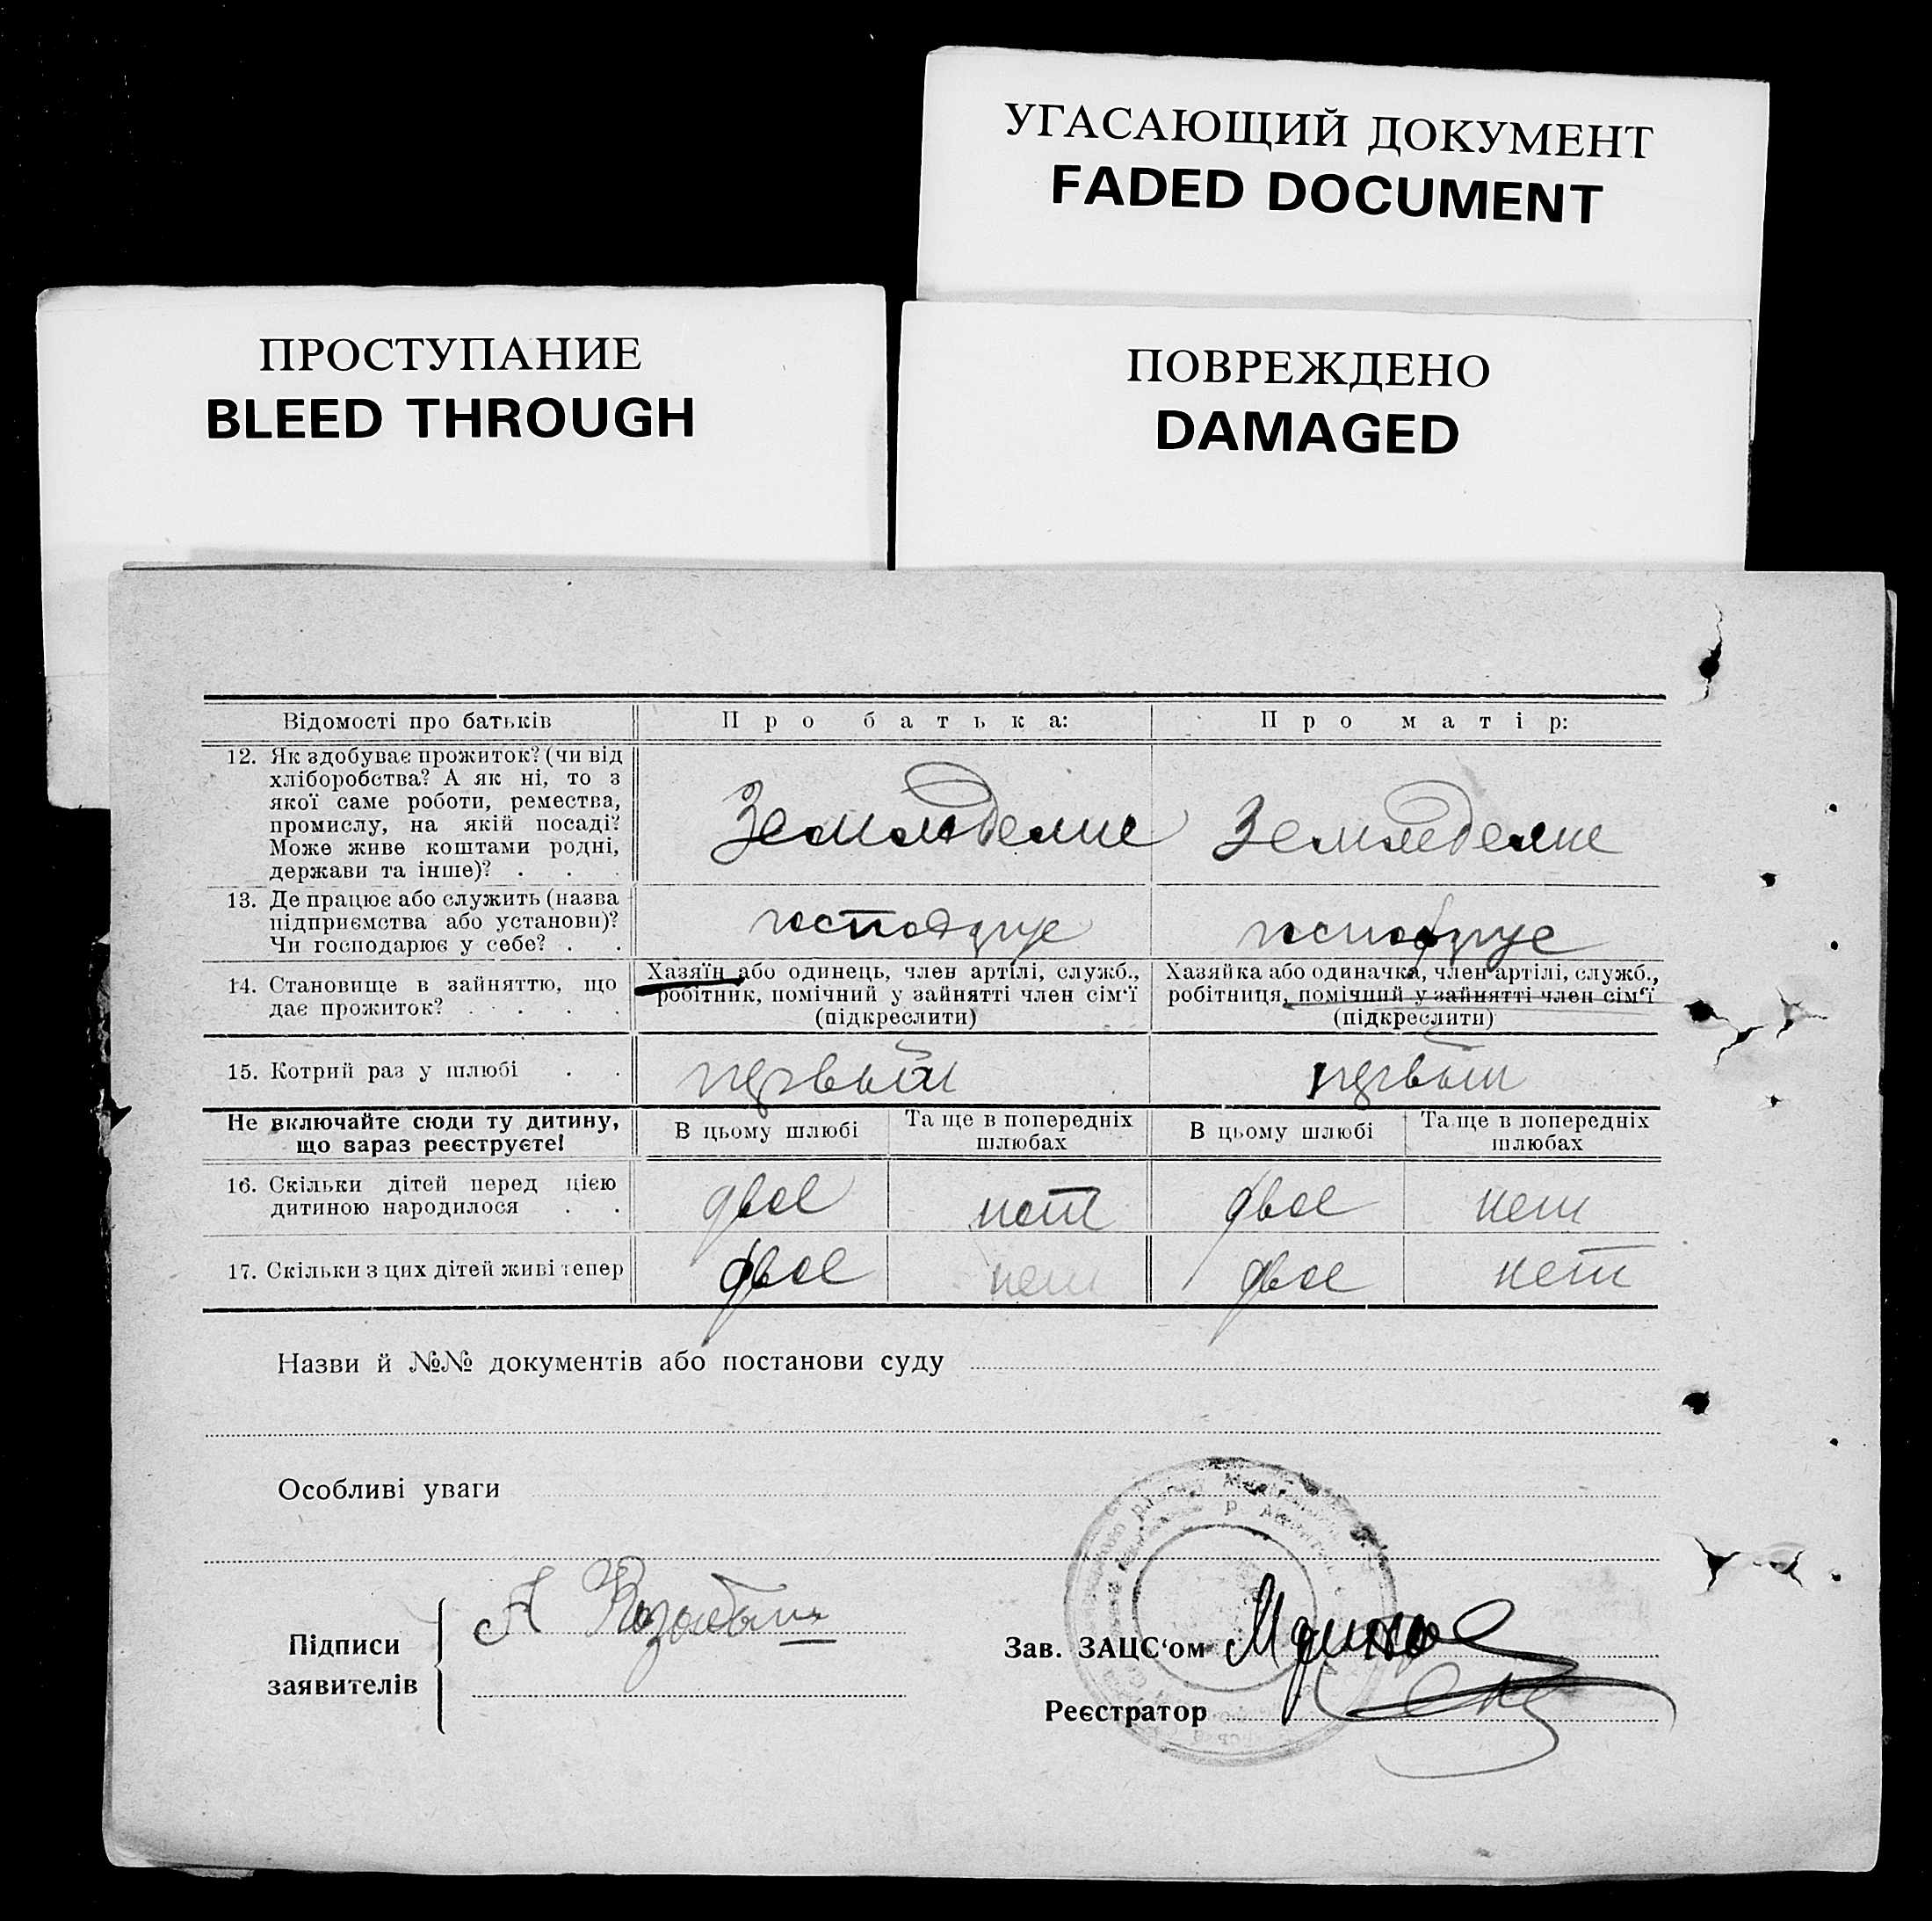 УГАСАЮЩИЙ ДОКУМЕНТ
FADED DOCUMENT
ПРОСТУПАНИЕ
BLEED THROUGH
ПОВРЕЖДЕНО
DAMAGED
Відомості про батьків
Про батька:
Про матір:
12. Як здобуває прожиток? (чи від
хліборобства? А як ні, то з
якої саме роботи, ремества,
промислу, на якій посаді?
Може живе коштами родні,
держави та інше)? . . .
Земледелие
Земледелие
13. Де працює або служить (назва
підприємства або установи)?
Чи господарює у себе? . .
14. Становище в зайняттю, що
дає прожиток? . . . .
Хазяїн або одинець, член артілі, служб.,
робітник, помічний у зайнятті член сім'ї
(підкреслити)
Хазяйка або одиначка, член артілі, служб.,
робітниця, помічний у зайнятті член сім'ї
(підкреслити)
15. Котрий раз у шлюбі . .
первый
первый
Не включайте сюди ту дитину,
що зараз реєструєте!
В цьому шлюбі
Та ще в попередніх
шлюбах
В цьому шлюбі
Та ще в попередніх
шлюбах
16. Скільки дітей перед цією
дитиною народилося . .
двое
нет
двое
нет
17. Скільки з цих дітей живі тепер
двое
нет
двое
нет
Назви й №№ документів або постанови суду
Особливі уваги
Підписи
заявителів
А
Зав. ЗАЦС'ом
Реєстратор